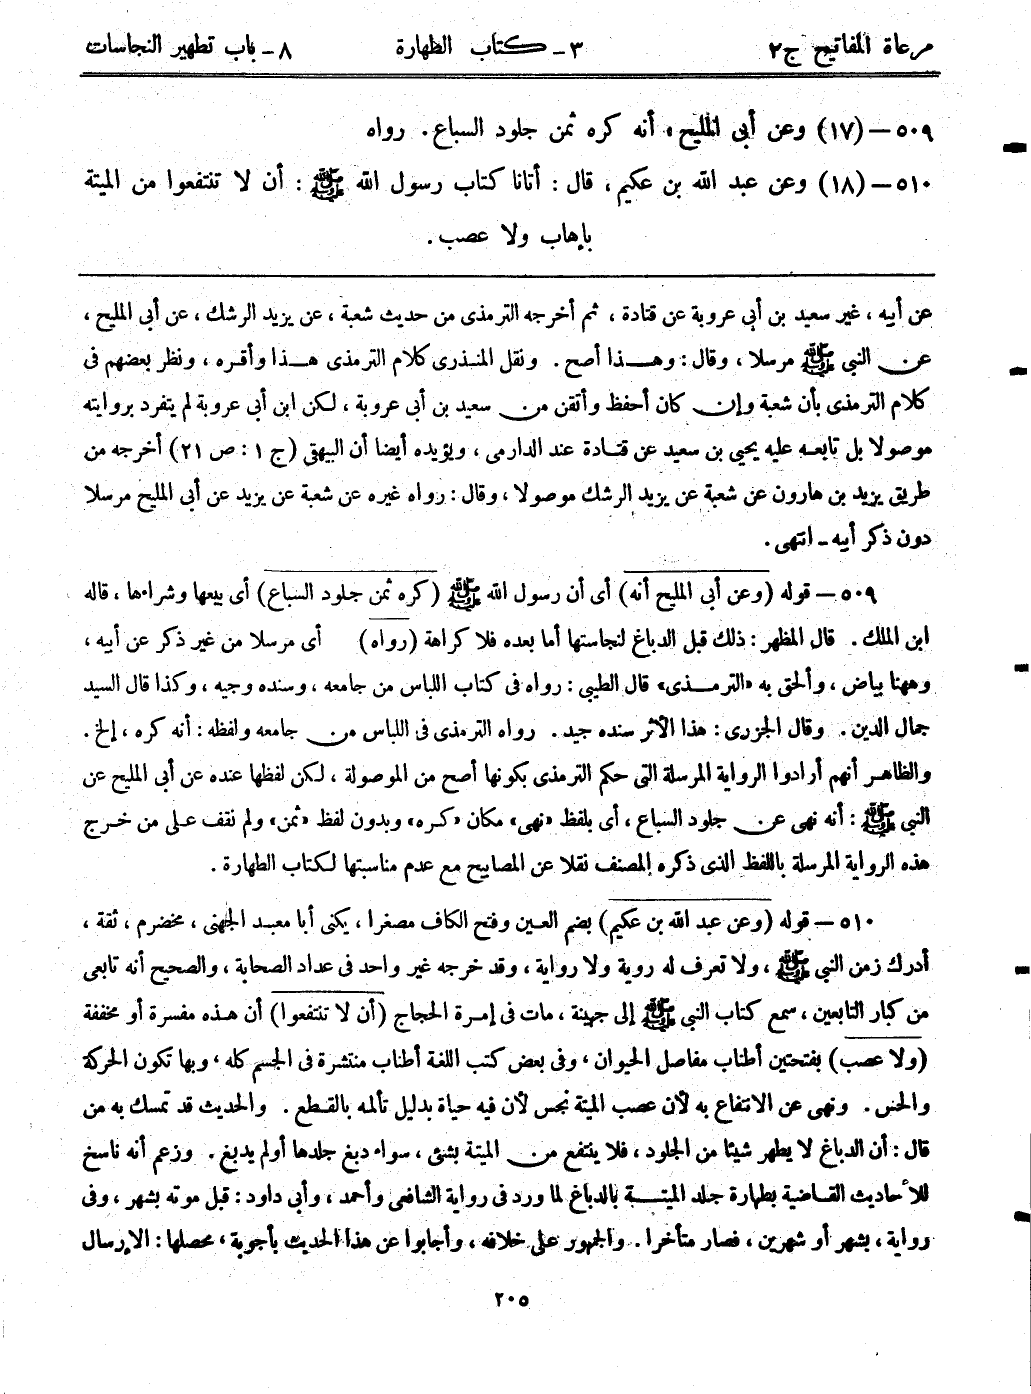 مرعاة المفاتيح ج٢ ٣ـ كتاب الطهارة ٨ـ باب تطهير النجاسات
٥٠٩ـ (١٧) وعن أبى المليح، أنه كره ثمن جلود السباع. رواه
٥١٠ـ (١٨) وعن عبد الله بن عكيم، قال: أتانا كتاب رسول الله ﷺ: أن لا تنتفعوا من الميتة
بإهاب ولا عصب.
عن أبيه، غير سعيد بن أبي عروبة عن قتادة، ثم أخرجه الترمذى من حديث شعبة، عن يزيد الرشك، عن أبى المليح،
عن النبي ﷺ مرسلا، وقال: وهذا أصح. ونقل المنذرى كلام الترمذى هذا وأقره، ونظر بعضهم فى
كلام الترمذى بأن شعبة وإن كان أحفظ وأتقن من سعيد بن أبي عروبة، لكن ابن أبي عروبة لم يتفرد بروايته
موصولا بل تابعه عليه يحيى بن سعيد عن قتادة عند الدارمى، ويؤيده أيضا أن البيهقى (ج ١: ص ٢١) أخرجه من
طريق يزيد بن هارون عن شعبة عن يزيد الرشك موصولا، وقال: رواه غيره عن شعبة عن يزيد عن أبي المليح مرسلا
دون ذكر أبيه ـ انتهى.
٥٠٩ـ قوله (وعن أبي المليح أنه) أى أن رسول الله ﷺ (كره ثمن جلود السباع) أى بيعها وشراءها، قاله
ابن الملك. قال المظهر: ذلك قبل الدباغ لنجاستها أما بعده فلا كراهة (رواه) أى مرسلا من غير ذكر عن أبيه،
وههنا بياض، وألحق به «الترمذى» قال الطيبي: رواه فى كتاب اللباس من جامعه، وسنده وجيه، وكذا قال السيد
جمال الدين. وقال الجزرى: هذا الأثر سنده جيد. رواه الترمذى فى اللباس من جامعه ولفظه: أنه كره، إلخ.
والظاهر أنهم أرادوا الرواية المرسلة التى حكم الترمذى بكونها أصح من الموصولة، لكن لفظها عنده عن أبي المليح عن
النبي ﷺ: أنه نهى عن جلود السباع، أى بلفظ «نهى» مكان «كره» وبدون لفظ «ثمن» ولم نقف على من خرج
هذه الرواية المرسلة باللفظ الذى ذكره المصنف نقلا عن المصابيح مع عدم مناسبتها لكتاب الطهارة.
٥١٠ـ قوله (وعن عبد الله بن عكيم) بضم العين وفتح الكاف مصغرا، يكنى أبا معبد الجهنى، مخضرم، ثقة،
أدرك زمن النبي ﷺ، ولا تعرف له روية ولا رواية، وقد خرجه غير واحد فى عداد الصحابة، والصحيح أنه تابعى
من كبار التابعين، سمع كتاب النبي ﷺ إلى جهينة، مات فى إمرة الحجاج (أن لا تنتفعوا) أن هذه مفسرة أو مخففة
(ولا عصب) بفتحتين أطناب مفاصل الحيوان، وفى بعض كتب اللغة أطناب منتشرة فى الجسم كله، وبها تكون الحركة
والحس. ونهى عن الانتفاع به لأن عصب الميتة نجس لأن فيه حياة بدليل تألمه بالقطع. والحديث قد تمسك به من
قال: أن الدباغ لا يطهر شيئا من الجلود، فلا ينتفع من الميتة بشئ، سواء دبغ جلدها أولم يدبغ. وزعم أنه ناسخ
للأحاديث القاضية بطهارة جلد الميتة بالدباغ لما ورد فى رواية الشافعى وأحمد، وأبي داود: قبل موته بشهر، وفى
رواية، بشهر أو شهرين، فصار متأخرا. والجمهور على خلافه، وأجابوا عن هذا الحديث بأجوبة، محصلها: الإرسال
٢٠٥